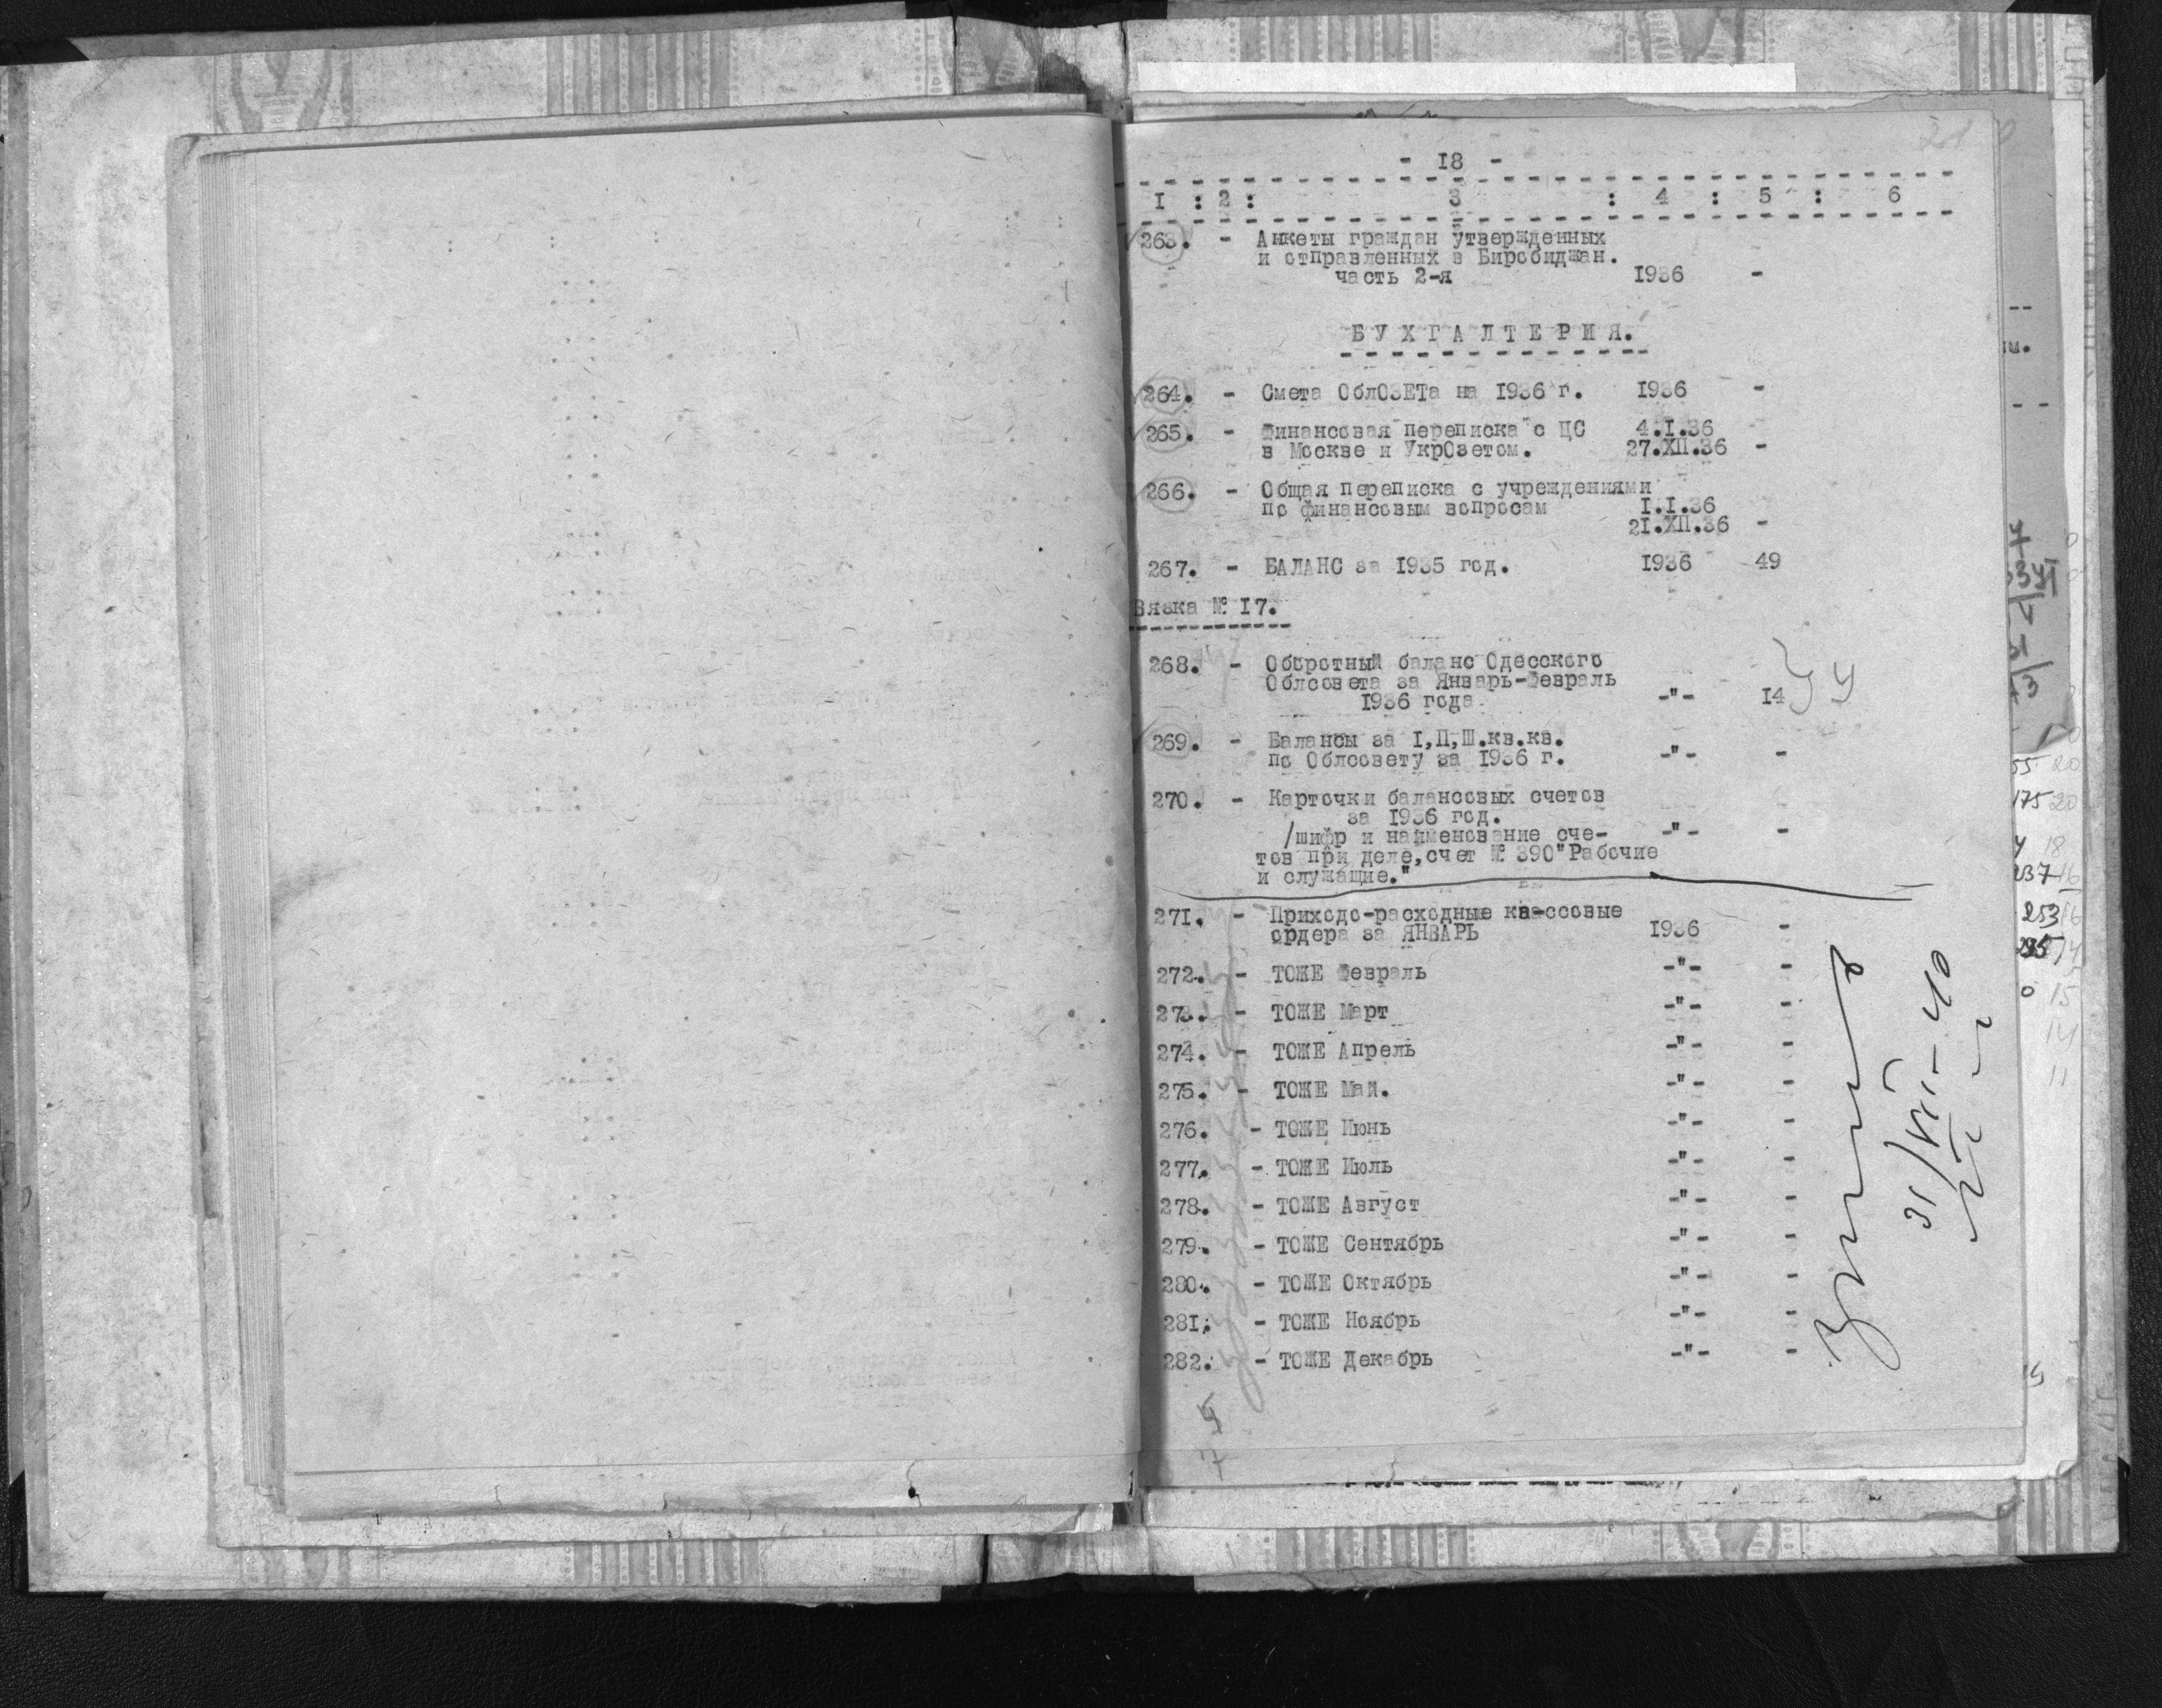 - I8 -
I : 2 : 3 : 4 : 5 : 6
263. - Анкеты граждан утвержденных
и отправленных в Биробиджан.
часть 2-я 1936 -
БУХГАЛТЕРИЯ.
264. - Смета ОблОЗЕТа на I936 г. I936 -
265. - Финансовая переписка с ЦС 4.I.36
в Москве и УкрОзетом. 27.ХП.36 -
266. - Общая переписка с учреждениями
по финансовым вопросам I.I.36
2I.ХП.36 -
267. - БАЛАНС за I935 год. I936 49
Вязка № I7.
268. - Оборотный баланс Одесского
Облсовета за Январь-Февраль
I936 года -"- I4
269. - Балансы за I,П,Ш.кв.кв.
по Облсовету за I936 г. -"- -
270. - Карточки балансовых счетов
за I936 год.
/шифр и наименование сче- -"- -
тов при деле,счет № 390"Рабочие
и служащие."
27I. - Приходо-расходные ка-ссовые
ордера за ЯНВАРЬ I936 -
272. - ТОЖЕ Февраль -"- -
273. - ТОЖЕ Март -"- -
274. - ТОЖЕ Апрель -"- -
275. - ТОЖЕ Май. -"- -
276. - ТОЖЕ Июнь -"- -
277. - ТОЖЕ Июль -"- -
278. - ТОЖЕ Август -"- -
279. - ТОЖЕ Сентябрь -"- -
280. - ТОЖЕ Октябрь -"- -
28I. - ТОЖЕ Ноябрь -"- -
282. - ТОЖЕ Декабрь -"- -
31/VII-40